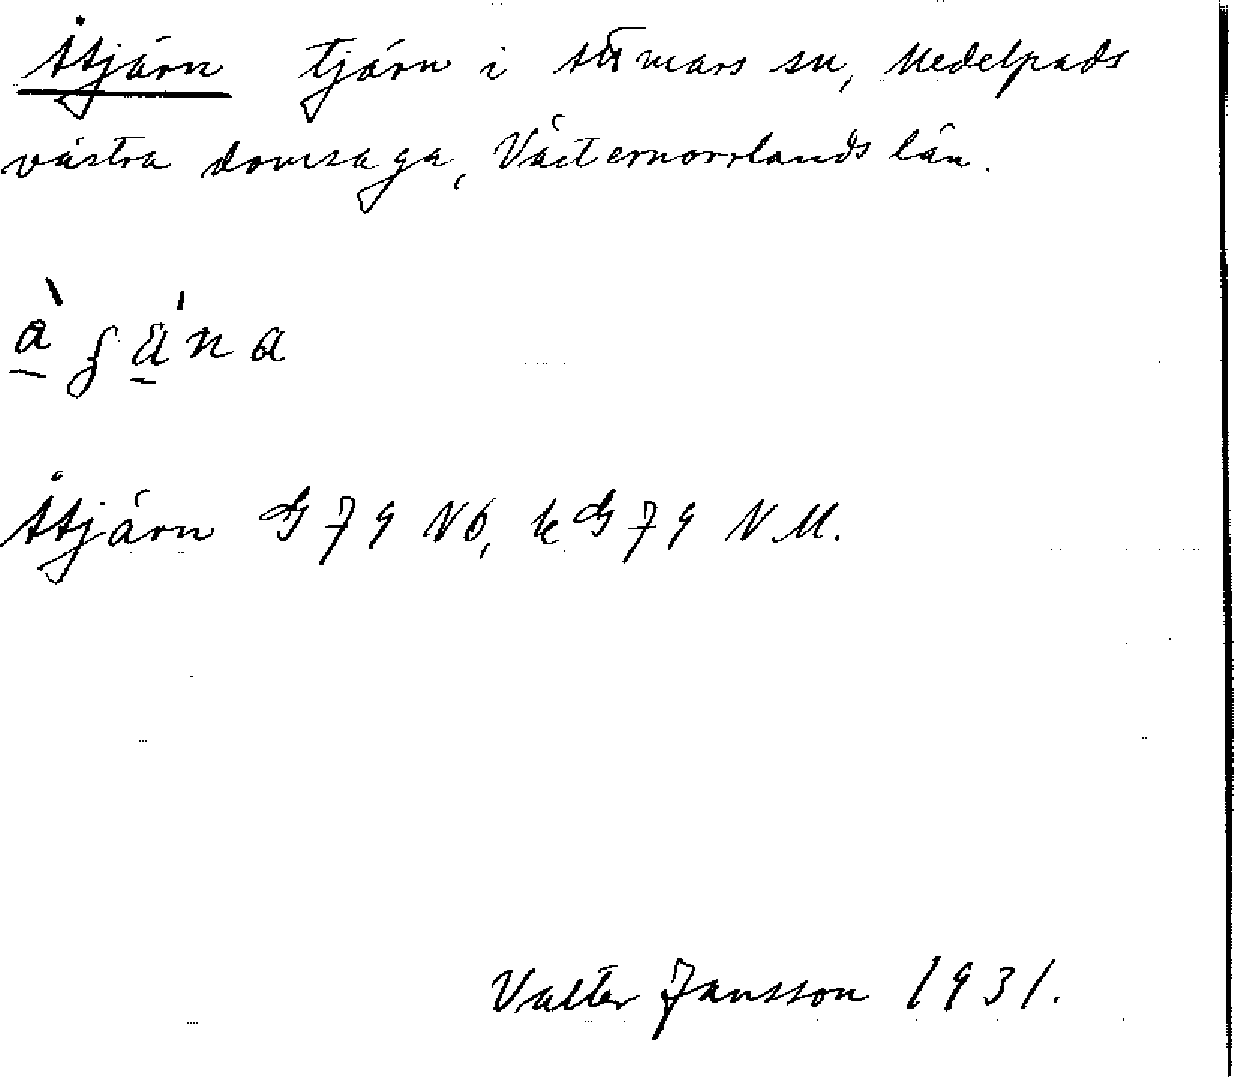 Åtjärn tjärn i Attmars sn, Medelpads
västra domsaga, Västernorrlands län.
Åtjärn G 79 NO, kG 79 NM.
Valter Jansson 1931.